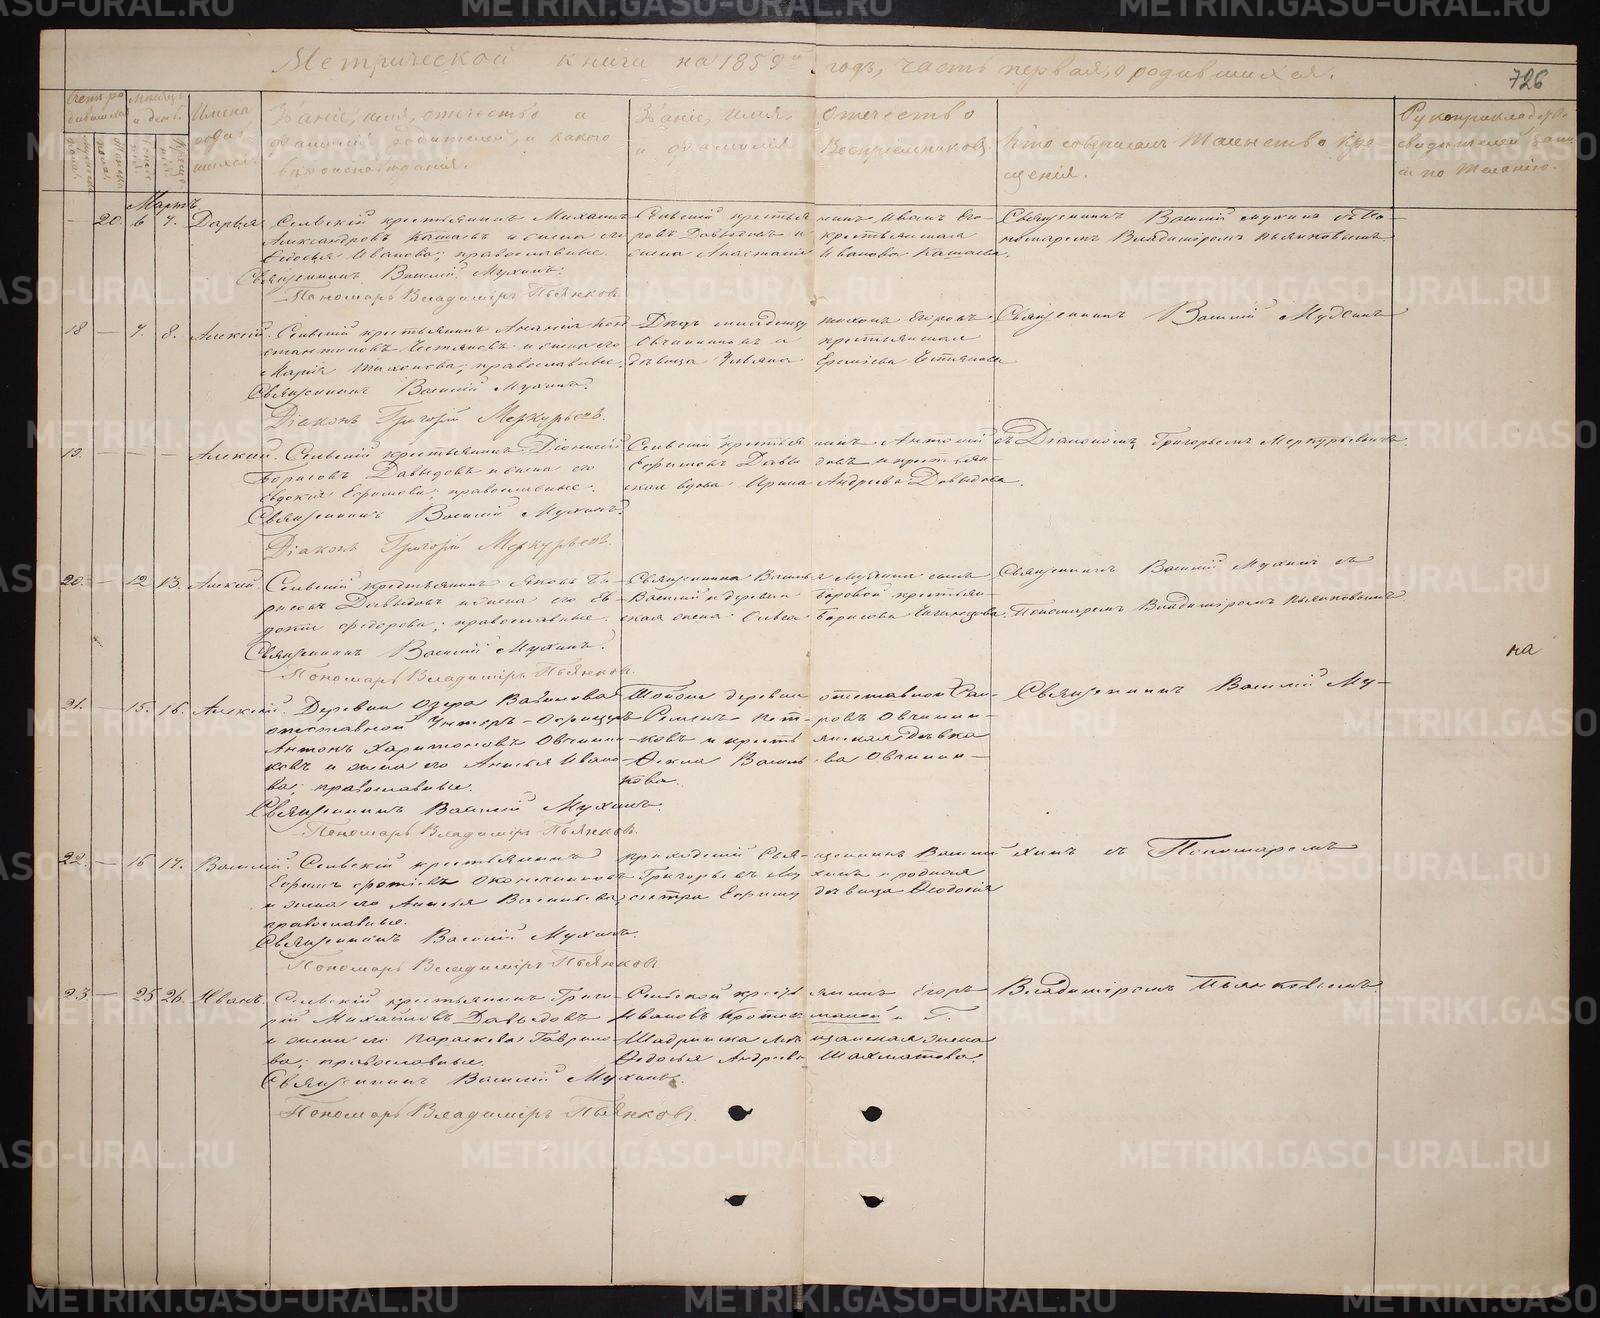 Метрической книги на 1859й годъ, часть первая, о родившихся.
726
Имена родившихся.
Званіе, имя, отчество и фамилія родителей, и какого вѣроисповѣданія.
Званіе, имя, отчество и фамилія Воспріемниковъ.
Кто совершалъ Таинство Крещенія.
Рукоприкладство свидѣтелей записи по желанію.
Мартъ.
— 20. 6 7. Дарья
Сельскій крестьянинъ Михаилъ
Александровъ Кашаевъ и жена его
Федосья Иванова; православные.
Священникъ Василій Мухинъ.
Пономарь Владиміръ Пьянковъ.
Сельскій крестьянинъ Иванъ Его-
ровъ Давыдовъ и крестьянская
жена Анастасія Иванова Кашаева.
Священникъ Василій Мухинъ съ По-
номаремъ Владиміромъ Пьянковымъ
18 — 7. 8. Алексѣй.
Сельскій крестьянинъ Ананія Кон-
стантиновъ и жена его
Марія Тихонова; православные.
Священникъ Василій Мухинъ.
Діаконъ Григорій Меркурьевъ.
Дѣдъ младенцу Тихонъ Егоровъ
Овчинниковъ и крестьянская
дѣвица Ульяна
Священникъ Василій Мухинъ
19. — — — Алексѣй.
Сельскій крестьянинъ Діонисій
Борисовъ Давыдовъ и жена его
Евдокія Ефимова; православные.
Священникъ Василій Мухинъ.
Діаконъ Григорій Меркурьевъ.
Сельскій крестьянинъ Антоній
Ефимовъ Давыдовъ и крестьян-
ская вдова Ирина Андреева Давыдова.
съ Діакономъ Григорьемъ Меркурьевымъ.
20. — 12 13. Алексѣй.
Сельскій крестьянинъ Яковъ Бо-
рисовъ Давыдовъ и жена его Ев-
докія Федорова; православные.
Священникъ Василій Мухинъ.
Пономарь Владиміръ Пьянковъ.
Священника Василья Мухина сынъ
Василій и деревни Боровой крестьян-
ская жена Ольга Борисова
Священникъ Василій Мухинъ съ
Пономаремъ Владиміромъ Пьянковымъ
на
21. — 15. 16. Алексѣй.
Деревни Озера
отставной Унтеръ-Офицеръ
Антонъ Харитоновъ Овчинни-
ковъ и жена его Анисья Ивано-
ва; православные.
Священникъ Василій Мухинъ.
Пономарь Владиміръ Пьянковъ.
Тойже деревни отставной
Семенъ Петровъ Овчинни-
ковъ и крестьянская дѣвка
Фекла Васильева Овчинни-
кова.
Священникъ Василій Му-
22. — 16 17. Василій.
Сельскій крестьянинъ
Ефимъ
и жена его Анисья Васильева;
православные.
Священникъ Василій Мухинъ.
Пономарь Владиміръ Пьянковъ.
приходскій Священникъ Василій
Григорьевъ Мухинъ и родная
сестра Ефиму дѣвица Феодосія
хинъ съ Пономаремъ
23 — 25 26. Иванъ.
Сельскій крестьянинъ Григо-
рій Михайловъ Давыдовъ
и жена его Параскева Гаврило-
ва; православные.
Священникъ Василій Мухинъ.
Пономарь Владиміръ Пьянковъ.
Сельской крестьянинъ Егоръ
Ивановъ и Г.
Шадринска мѣщанская жена
Федосья Андреева Шахматова.
Владиміромъ Пьянковымъ.
METRIKI.GASO-URAL.RU